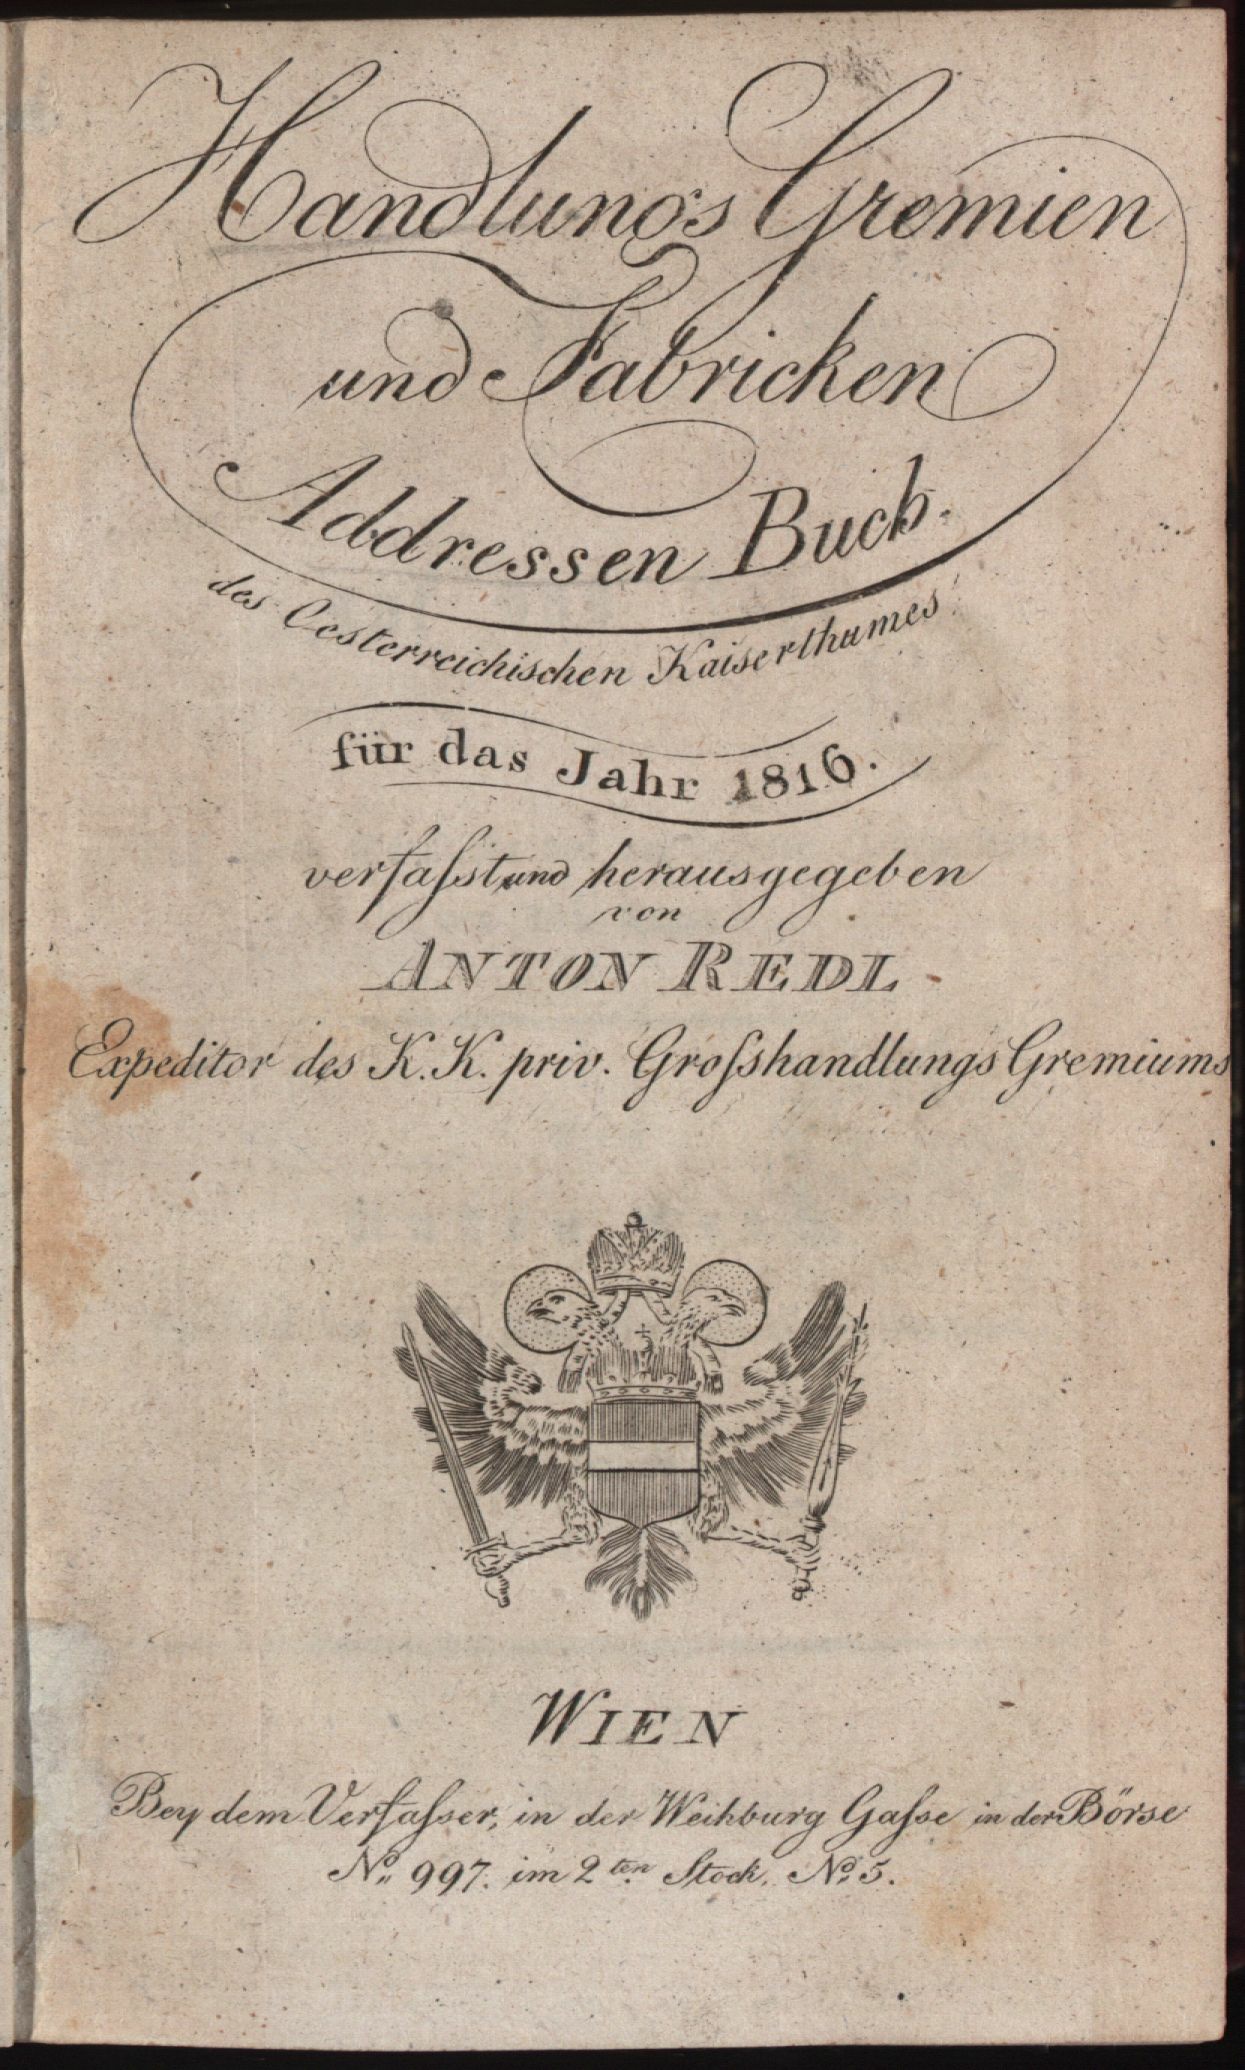 Handlungs Gremien
und Fabricken
Addressen Buch.
des Oesterreichischen Kaiserthumes
für das Jahr 1816.
verfaſst und herausgegeben
von
ANTON REDL
Expeditor des K. K. priv. Groſshandlungs Gremiums
WIEN
Bey dem Verfaſser, in der Weihburg Gaſse in der Börse
No. 997. im 2ten Stock. No. 5.